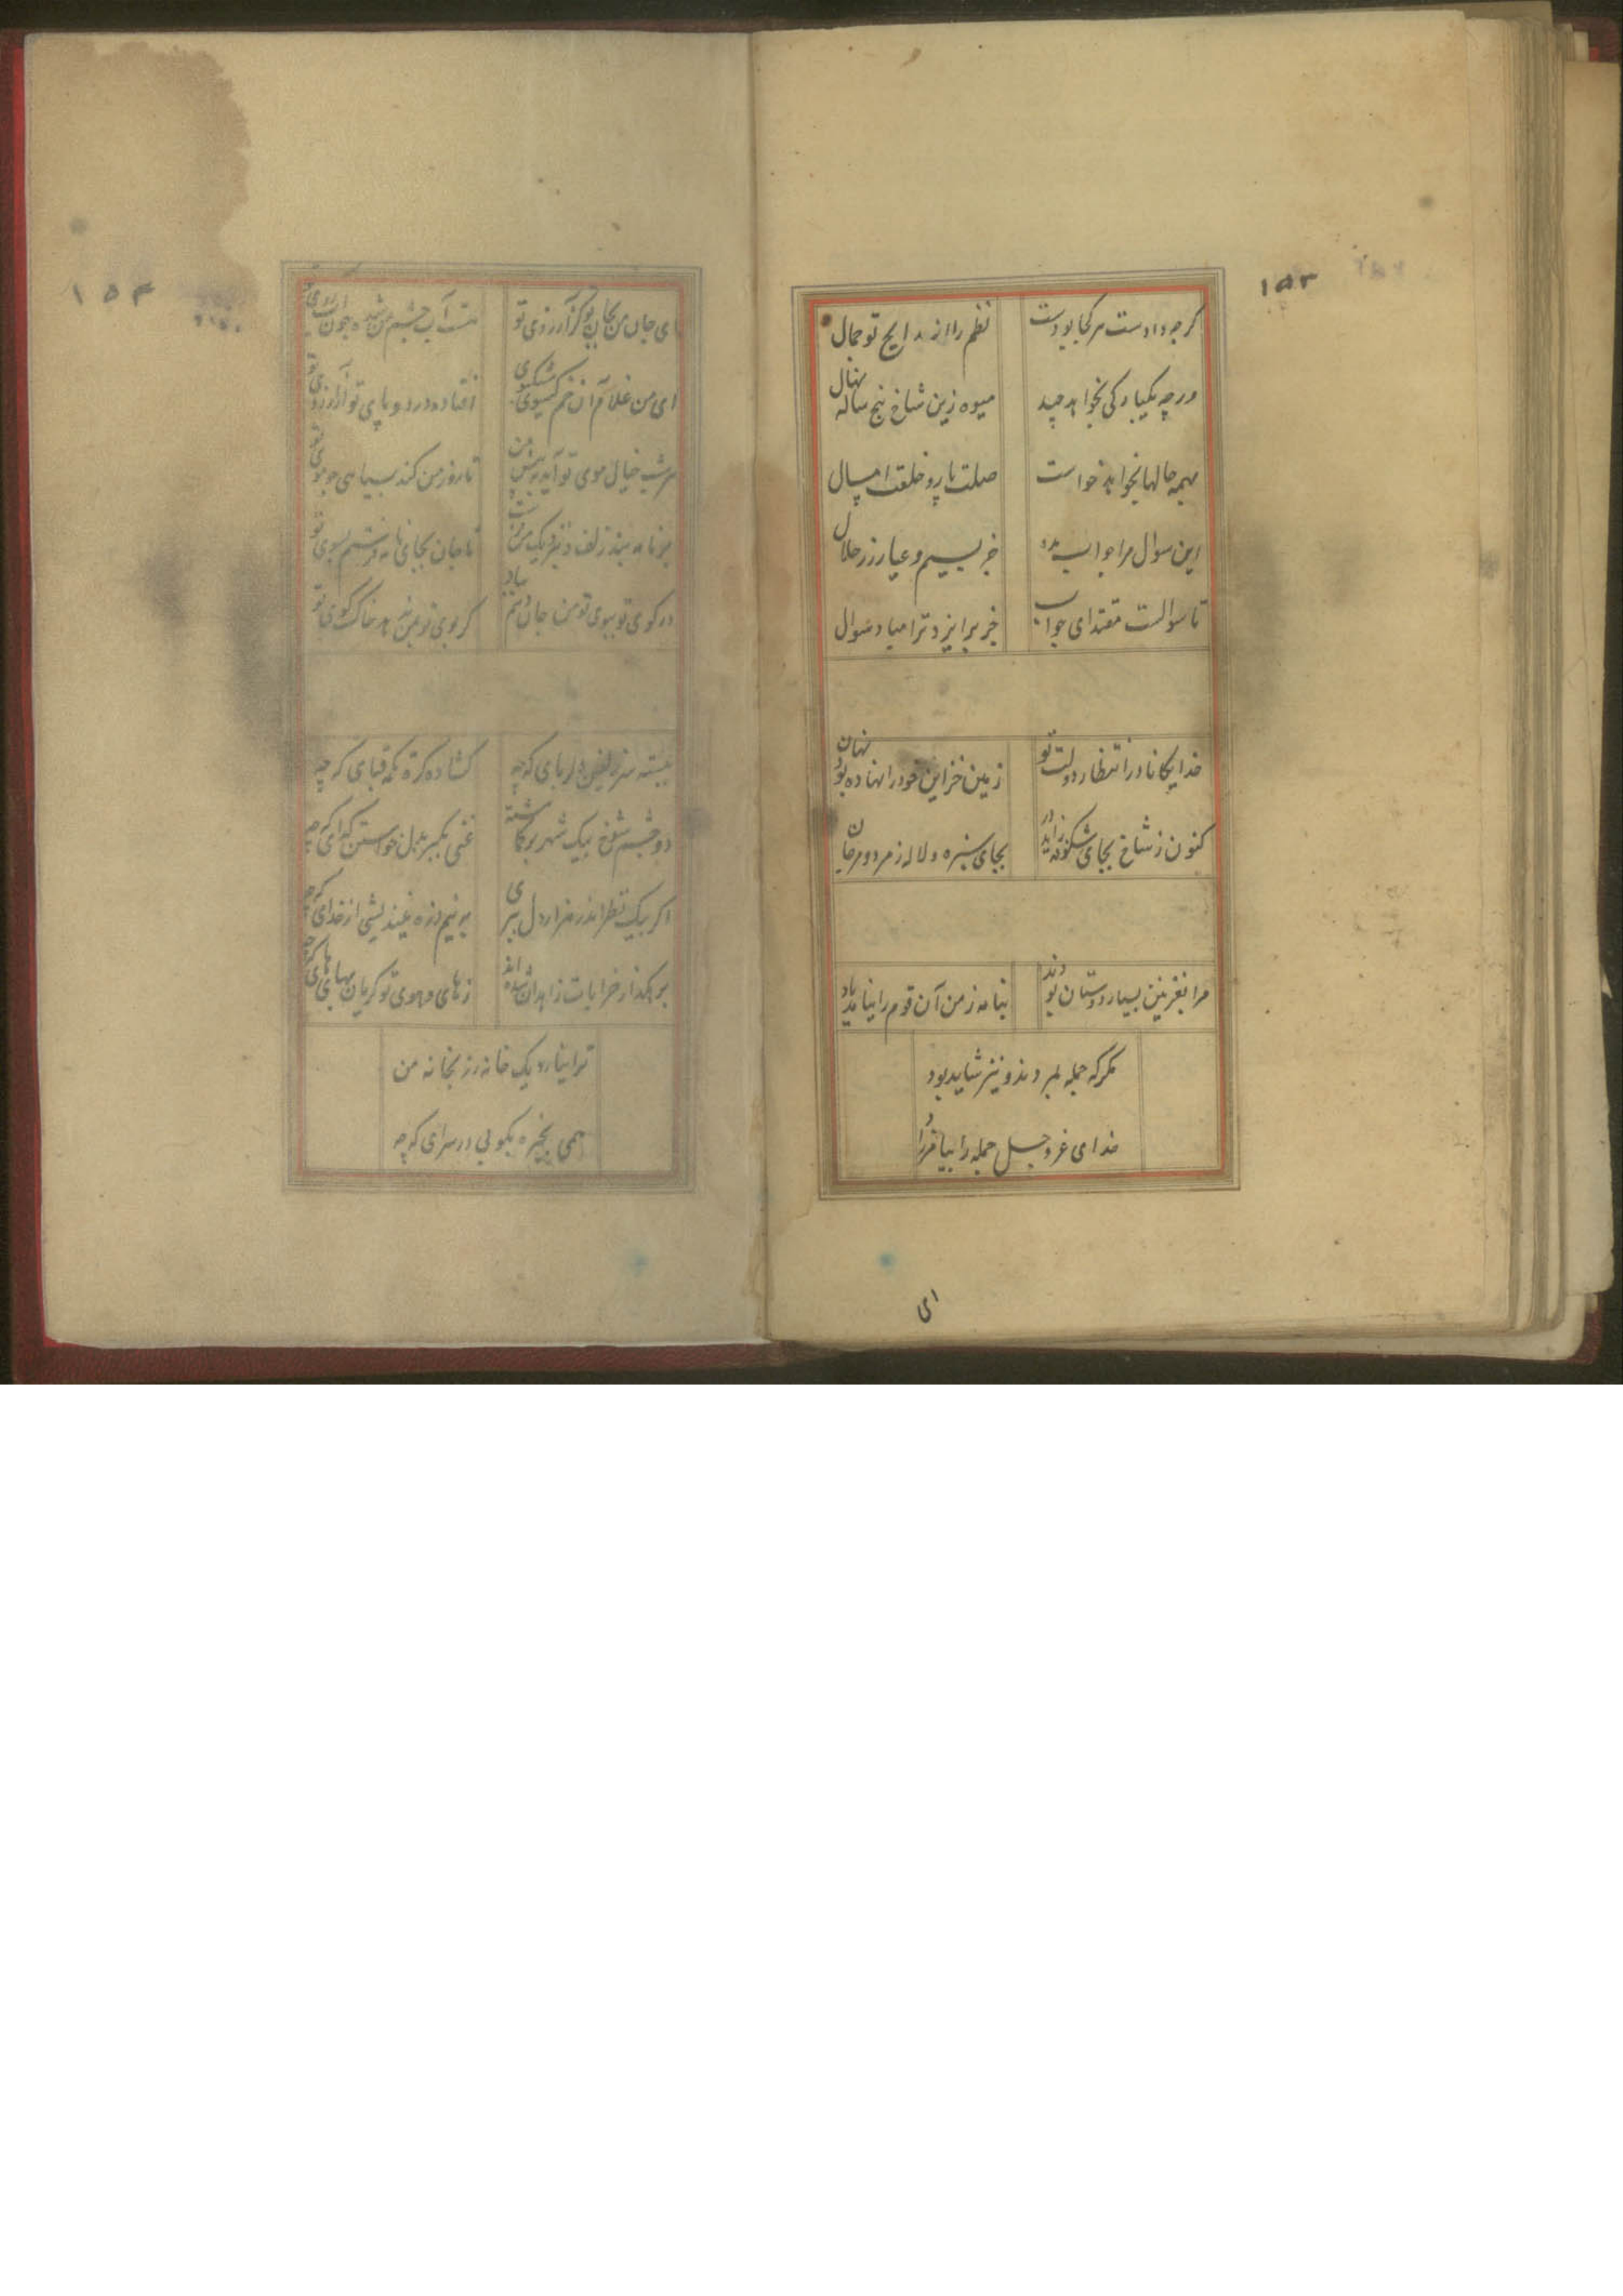 ۱۵۳
گرچه دادست هر کجا بودست
نظم را از مدایح تو جمال
ورچه یکبارکی نخواهد چید
میوه زین شاخ پنج ساله نهال
بهمه حالها نخواهد خواست
صلت پار و خلعت امسال
این سوال مرا جواب بده
جز بسیم و عیار زر حلال
تا سوالست مقتدای جواب
جز بر ایزد ترا مباد سوال
خدایگانا در انتظار دولت تو
زمین خزاین خود را نهاده بود نهان
کنون ز شاخ بجای شکوفه زاید در
بجای سبزه و لاله زمرد و مرجان
مرا بغزنین بسیار دوستان بودند
بنامه ز من آن قوم را نیامد یاد
مگر که جمله بمردند و نیز شاید بود
خدای عز و جل جمله را بیامرزاد
ای
۱۵۴
ای جان من بجان تو کز آرزوی تو
هست آب چشم من شده چون آب روی تو
ای من غلام آن خم گیسوی مشکبوی
افتاده در دو پای تو از آرزوی تو
هر شب خیال موی تو آید به پیش من
تا روز من کند بسیاهی چو موی تو
پر نامه بند زلف و نزدیک من فرست
تا جان بجای نامه فرستم بسوی تو
در کوی تو ببوی تو من جان دهم بباد
گر بوی تو بمن ندهد خاک کوی تو
ببسته سر زلفین دلربای که چه
گشاده کرته قبای که چه
دو چشم شوخ بیک شهر بر گماشته
غنی بدل خواستن گدای که چه
اگر بیک نظر اندر هزار دل ببری
به نیم ذره نیندیشی از خدای که چه
برهگذار خرابات زاهدان شده اند
ز های و هوی تو گریان بهای های که چه
ترا بنارو یک خانه رز بخانه من
همی بخیره بکوبی در سرای که چه